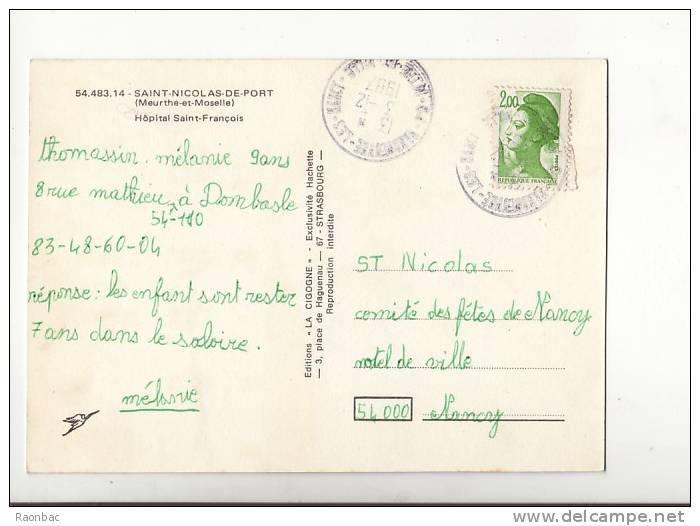 54.483.14 - SAINT-NICOLAS-DE-PORT
(Meurthe-et-Moselle)
Hôpital Saint-François
thomassin. mélanie 9ans
8 rue mathieu à Dombasle
54-110
83-48-60-04
réponse: les enfant sont rester
7 ans dans le saloire.
mélanie
Editions "LA CIGOGNE" - Exclusivité Hachette
— 3, place de Haguenau — 67 - STRASBOURG —
Reproduction interdite
1987
2,00
REPUBLIQUE FRANÇAISE
ST Nicolas
comité des fêtes de Nancy
hotel de ville
54000 Nancy
Raonbac
delcampe.net